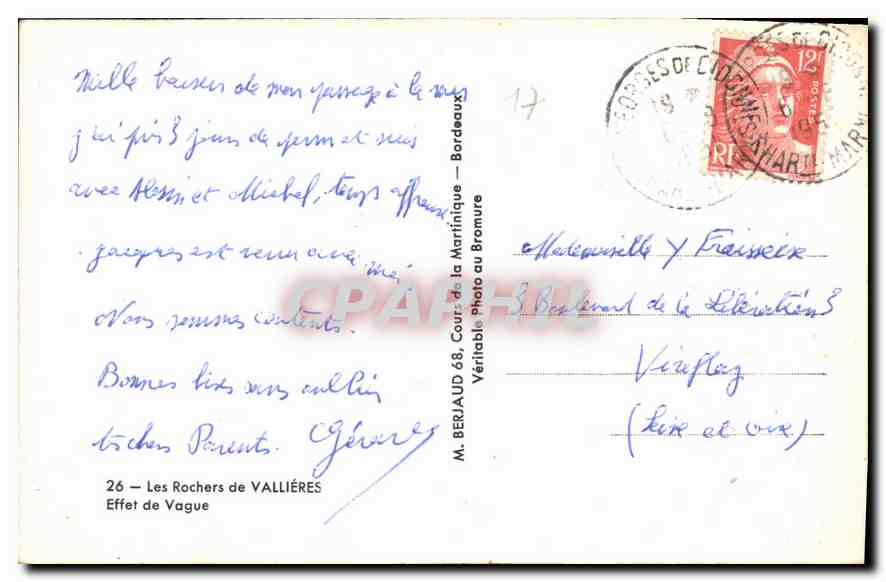 Mille baisers de mon passage à la mer
j'ai pris 3 jours de perm et suis
avec Alain et Michel, temps affreux.
Jacques est venu avec moi
Nous sommes contents.
Bonnes bises sans oublier
tes chers Parents. Gérard
26 — Les Rochers de VALLIÉRES
Effet de Vague
M. BERJAUD 68, Cours de la Martinique — Bordeaux
Véritable Photo au Bromure
17
12F
POSTES
RF
GEORGES DE DIDONNE
CHARTE MARME
Mademoiselle Y Fraisseix
3 Boulevard de la Libération 3
Viroflay
(Seine et Oise)
CPAPHIL